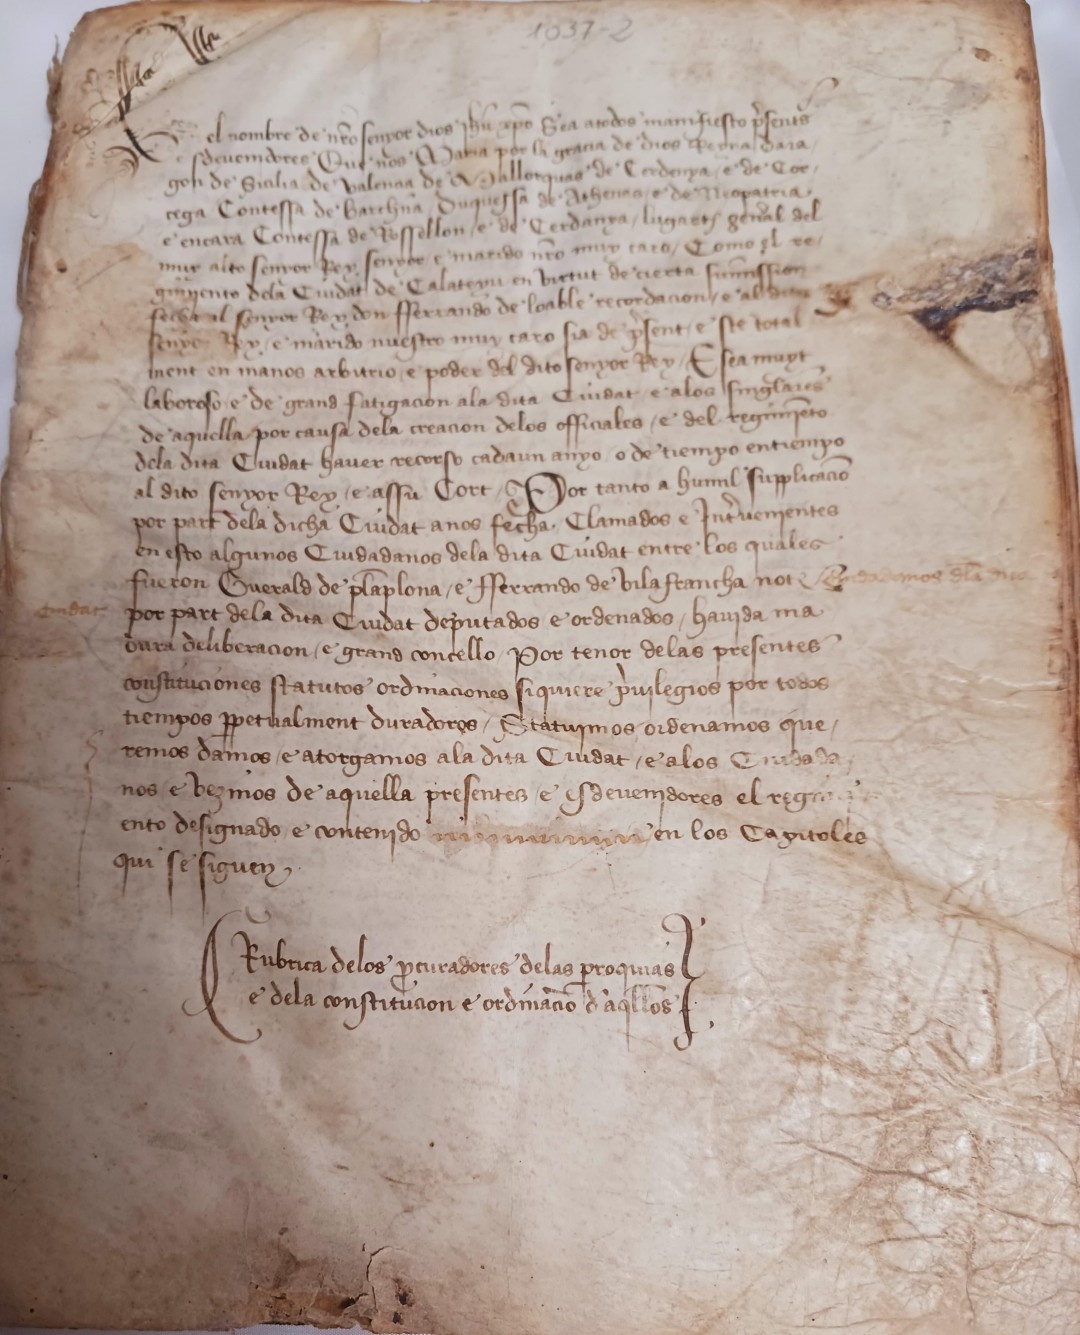 1037-2
el nombre de nr̃o senyor dios jhũ xp̃o Sea a todos manifiesto p̃sents
e esdevenidores Que nos Maria por la gracia de dios Reyna dara
gon de Sicilia de Valencia de Mallorquas de Cerdenya e de Cor
cega Contessa de Barchna Duquessa de Athenas e de Neopatria
e encara Contessa de Rossellon e de Cerdanya lugarts gen̄al del
muy alto senyor Rey senyor e marido nr̃o muy caro Como el re
gimiento dela Ciudat de Calatayu en virtut de cierta summission
fecha al senyor Rey don fferrando de loable recordacion e al dito
senyor Rey e marido nuestro muy caro sia de p̃sent e ste total
ment en manos arbitrio e poder del dito senyor Rey E sea muyt
laboroso e de grand fatigacion ala dita Ciudat e alos singlares
de aquella por causa dela creacion delos officiales e del regimiẽto
dela dita Ciudat haver recorso cadaun anyo o de tiempo en tiempo
al dito senyor Rey e assu Cort Por tanto a humil supplicaciõ
por part dela dicha Ciudat a nos fecha Clamados e Int̃uenientes
en esto algunos Ciudadanos dela dita Ciudat entre los quales
fueron Guerald de pãplona e fferrando de Vilafrancha not Ciudadanos dla dita
Ciudat por part dela dita Ciudat deputados e ordenados havida ma
dura deliberacion e grand concello Por tenor delas presentes
constituciones statutos ordinaciones siquiere p̃uilegios por todos
tiempos ꝑpetualment duradoros Statuymos ordenamos que
remos damos e atorgamos ala dita Ciudat e alos Ciudada
nos e vezinos de aquella presentes e esdevenidores el regimi
ento designado e contenido en los Capitoles
qui se siguen
Rubrica delos ꝓcuradores delas ꝑroquias
e dela constitucion e ordinaciõ daq̃llos